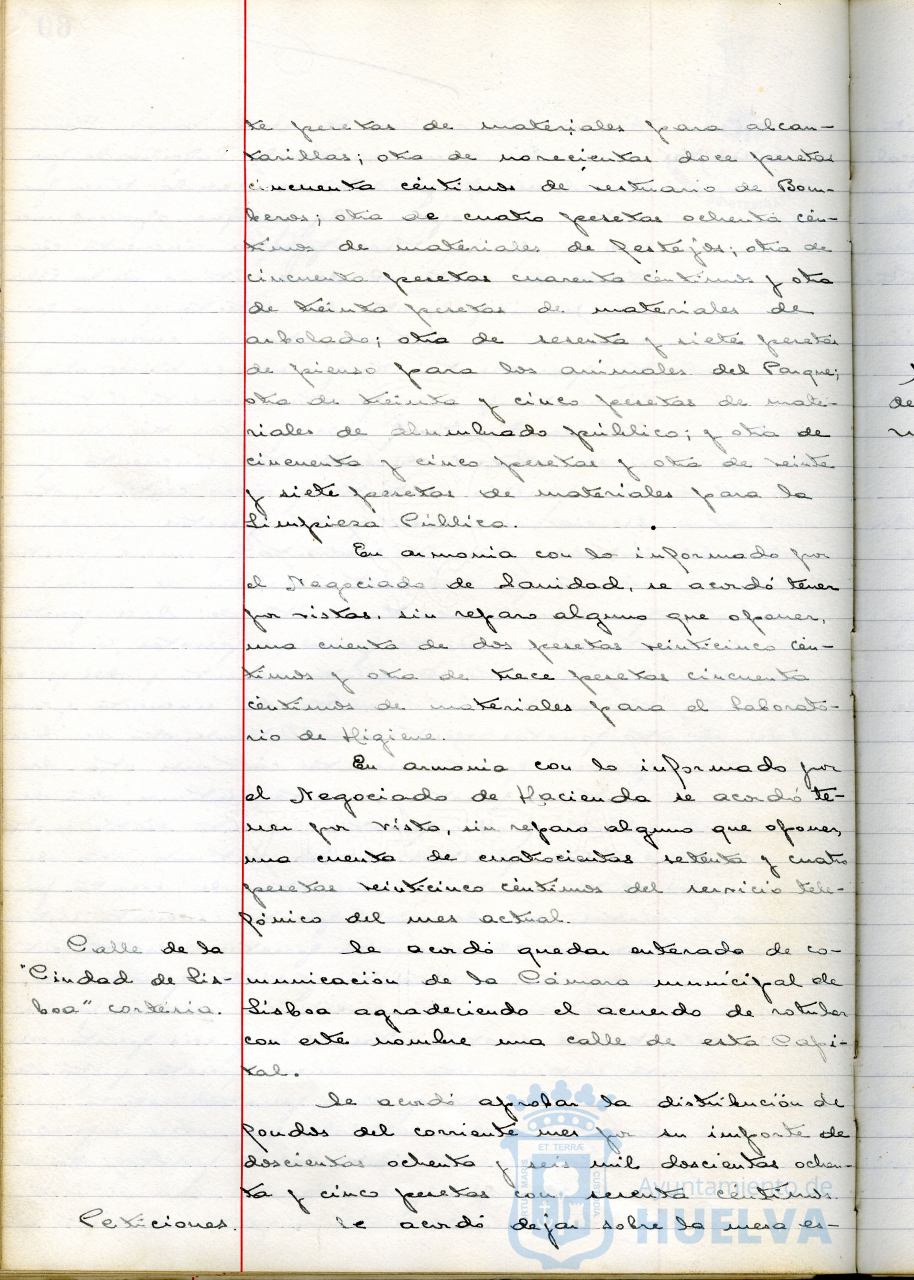 te pesetas de materiales para alcan-
tarillas; otra de novecientas doce pesetas
cincuenta céntimos de vestuario de Bom-
beros; otra de cuatro pesetas ochenta cén-
timos de materiales de festejos; otra de
cincuenta pesetas cuarenta céntimos y otra
de treinta pesetas de materiales de
arbolado; otra de sesenta y siete pesetas
de pienso para los animales del Parque;
otra de treinta y cinco pesetas de mate-
riales de alumbrado público; y otra de
cincuenta y cinco pesetas y otra de veinte
y siete pesetas de materiales para la
Limpieza Pública.
En armonia con lo informado por
el Negociado de Sanidad, se acordó tener
por vistas, sin reparo alguno que oponer,
una cuenta de dos pesetas veinticinco cén-
timos y otra de trece pesetas cincuenta
céntimos de materiales para el Laborato-
rio de Higiene.
En armonia con lo informado por
el Negociado de Hacienda se acordó te-
ner por vista, sin reparo alguno que oponer,
una cuenta de cuatrocientas setenta y cuatro
pesetas veinticinco céntimos del servicio tele-
fónico del mes actual.
Calle de la
"Ciudad de Lis-
boa" cortesia.
Se acordó quedar enterado de co-
municación de la Cámara municipal de
Lisboa agradeciendo el acuerdo de rotular
con este nombre una calle de esta Capi-
tal.
Se acordó aprobar la distribución de
fondos del corriente mes por su importe de
doscientas ochenta y seis mil doscientas ochen-
ta y cinco pesetas con sesenta céntimos.
Peticiones.
Se acordó dejar sobre la mesa es-
Ayuntamiento de
HUELVA